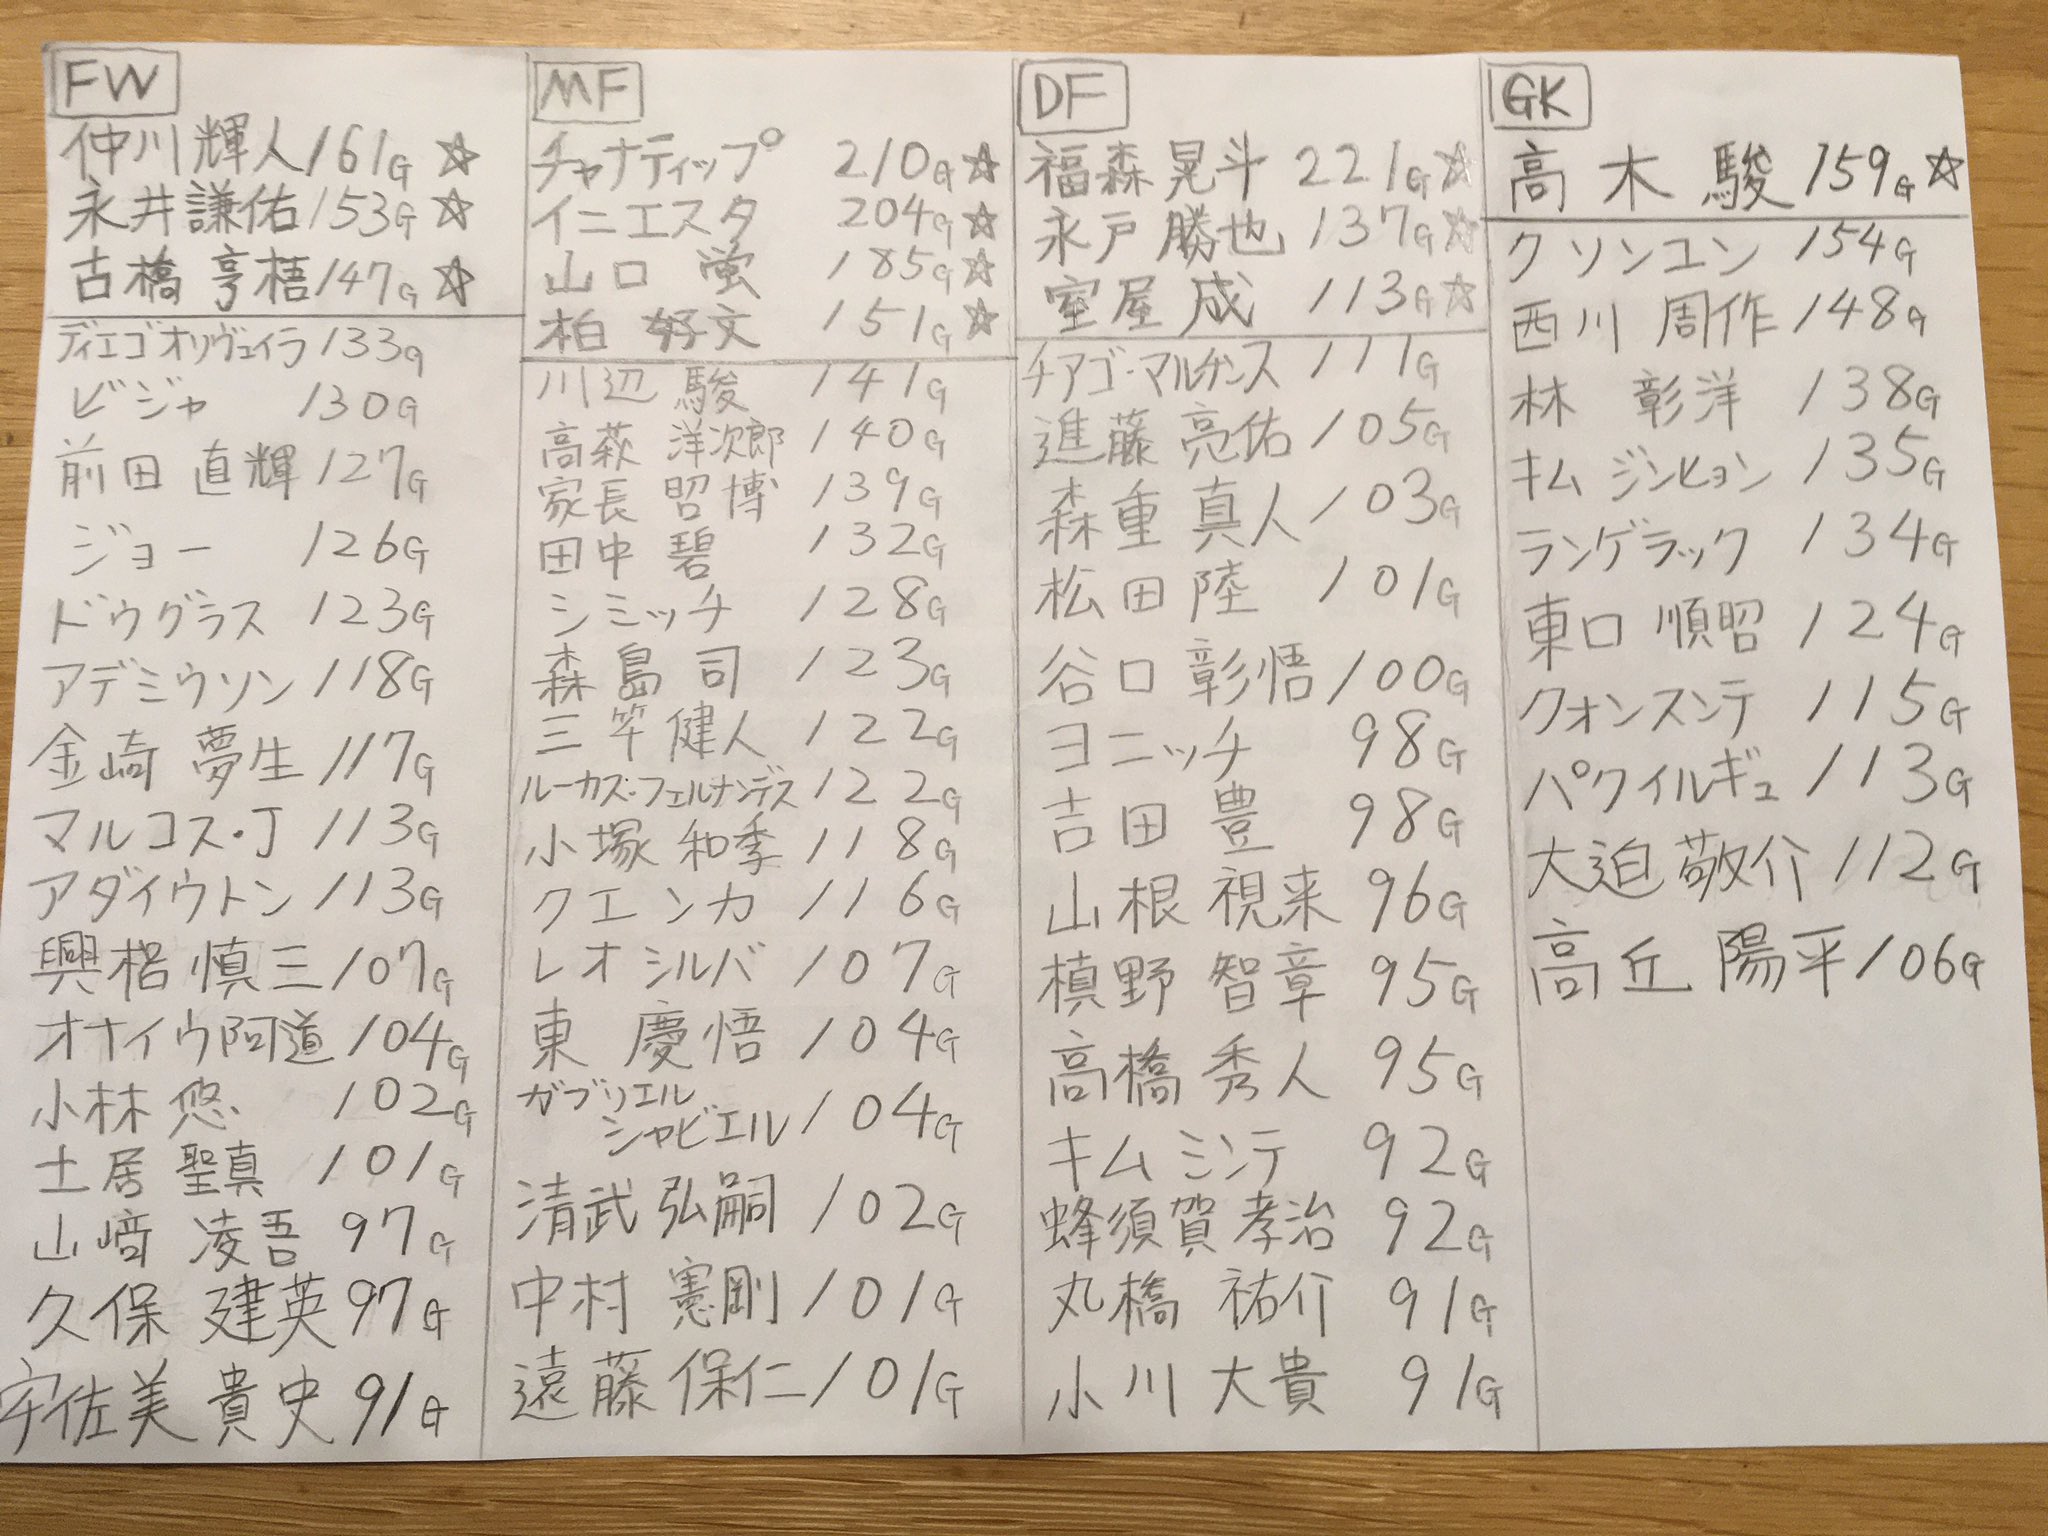 FW
仲川 輝人 161G ☆
永井 謙佑 153G ☆
古橋 亨梧 147G ☆
ディエゴオリヴェイラ 133G
ビジャ 130G
前田 直輝 127G
ジョー 126G
ドウグラス 123G
アデミウソン 118G
金崎 夢生 117G
マルコス・J 113G
アダイウトン 113G
興梠 慎三 107G
オナイウ阿道 104G
小林 悠 102G
土居 聖真 101G
山﨑 凌吾 97G
久保 建英 97G
宇佐美 貴史 91G
MF
チャナティップ 210G ☆
イニエスタ 204G ☆
山口 蛍 185G ☆
柏 好文 151G ☆
川辺 駿 141G
高萩 洋次郎 140G
家長 昭博 139G
田中 碧 132G
シミッチ 128G
森島 司 123G
三竿 健人 122G
ルーカス・フェルナンデス 122G
小塚 和季 118G
クエンカ 116G
レオシルバ 107G
東 慶悟 104G
ガブリエル
シャビエル 104G
清武 弘嗣 102G
中村 憲剛 101G
遠藤 保仁 101G
DF
福森 晃斗 221G ☆
永戸 勝也 137G ☆
室屋 成 113G ☆
チアゴ・マルチンス 111G
進藤 亮佑 105G
森重 真人 103G
松田 陸 101G
谷口 彰悟 100G
ヨニッチ 98G
吉田 豊 98G
山根 視来 96G
槙野 智章 95G
高橋 秀人 95G
キム ミンテ 92G
蜂須賀 孝治 92G
丸橋 祐介 91G
小川 大貴 91G
GK
高木 駿 159G ☆
クソンユン 154G
西川 周作 148G
林 彰洋 138G
キム ジンヒョン 135G
ランゲラック 134G
東口 順昭 124G
クォンスンテ 115G
パクイルギュ 113G
大迫 敬介 112G
高丘 陽平 106G